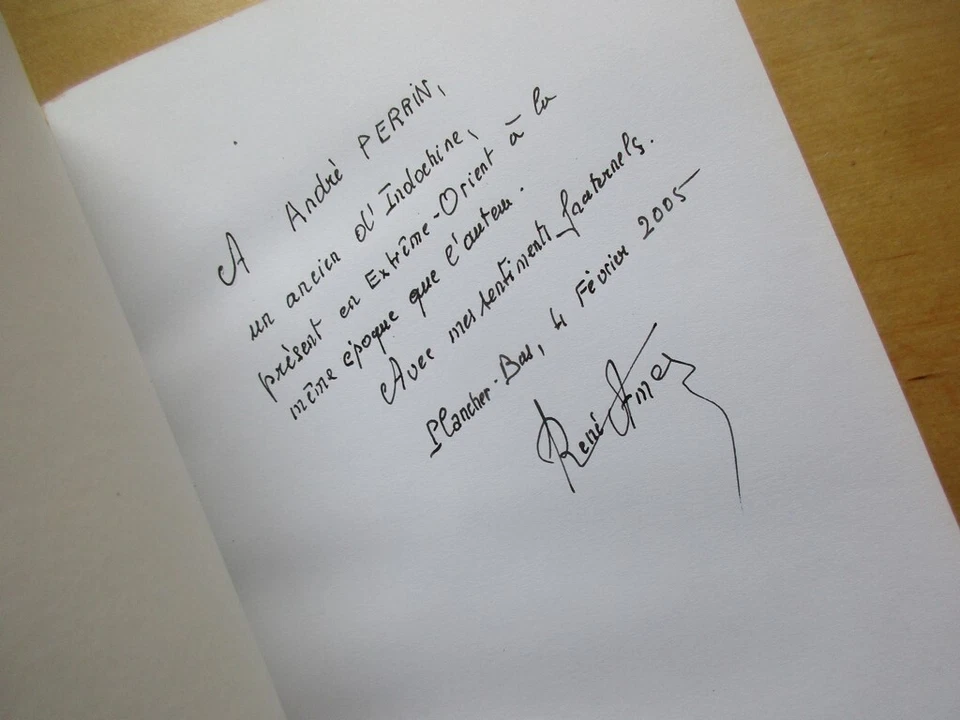 A André PERRIN,
un ancien d'Indochine,
présent en Extrême-Orient à la
même époque que l'auteur.
Avec mes sentiments fraternels.
Plancher-Bas, 4 Février 2005
René